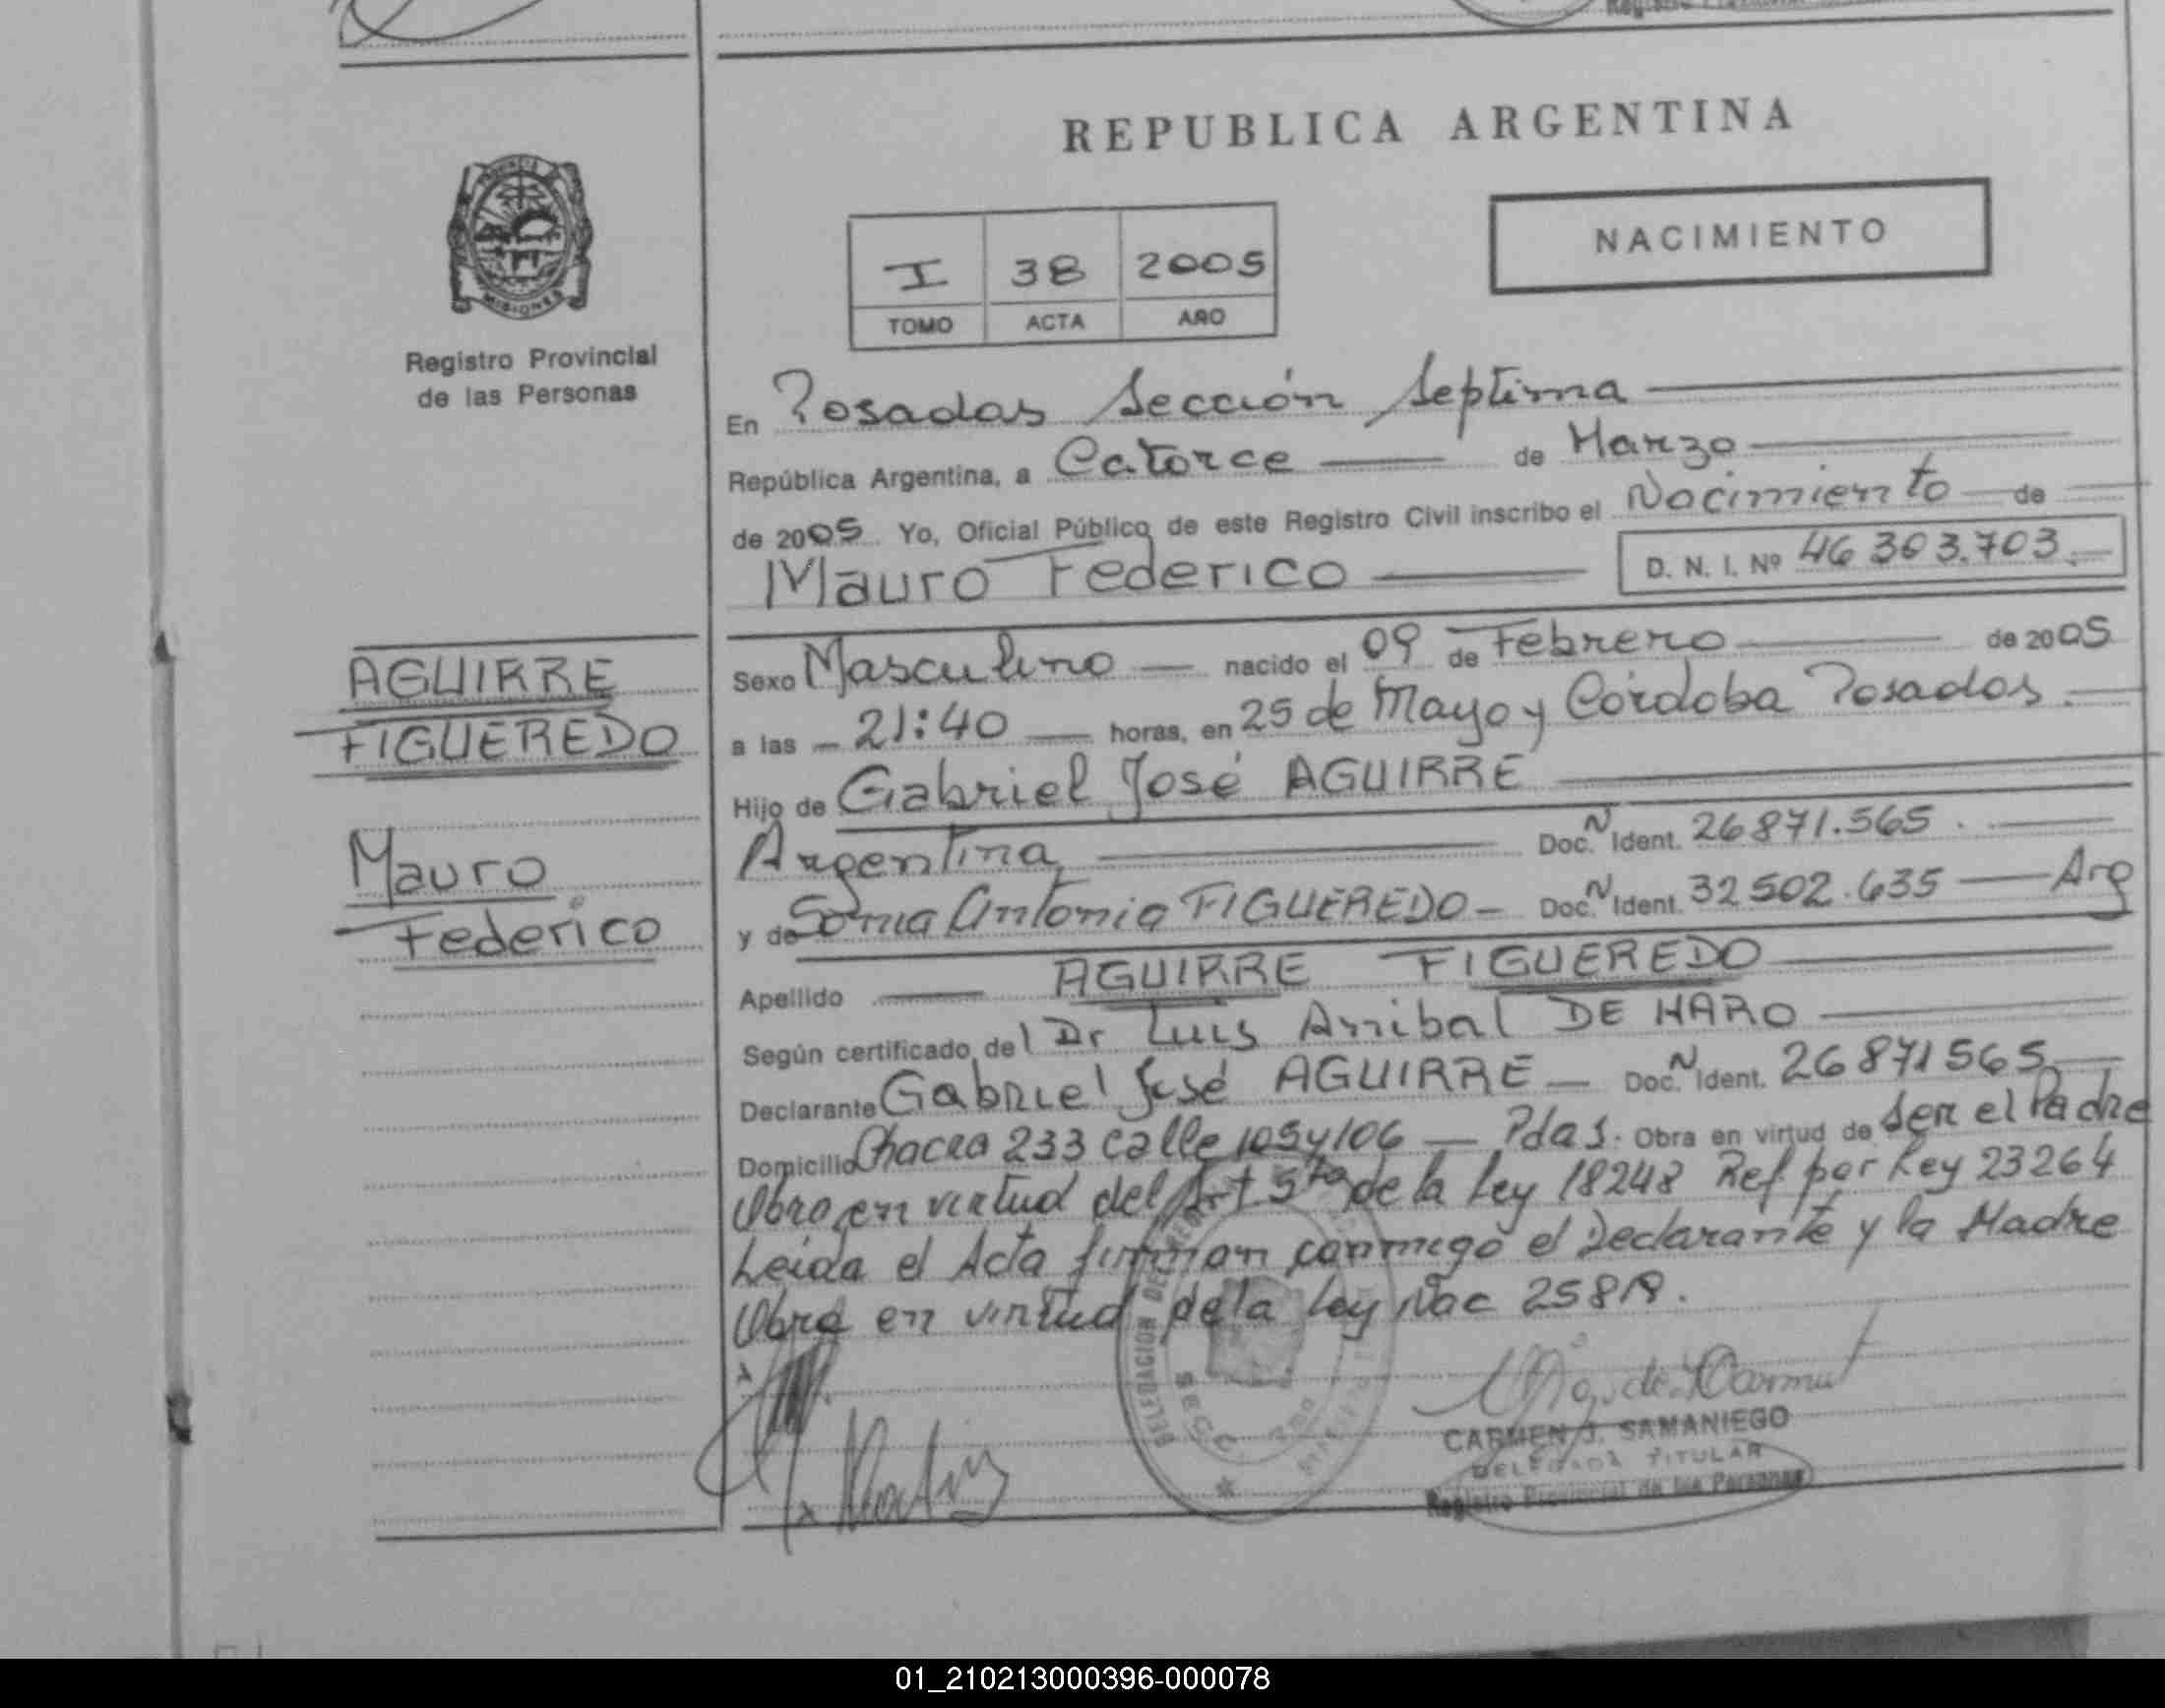 REPUBLICA ARGENTINA
NACIMIENTO
I 38 2005
TOMO ACTA AÑO
PROVINCIA
MISIONES
Registro Provincial
de las Personas
En Posadas Sección Septima
República Argentina, a Catorce de Marzo
de 2005. Yo, Oficial Público de este Registro Civil inscribo el Nacimiento de
Mauro Federico D. N. I. Nº 46 303.703.
AGUIRRE
FIGUEREDO
Mauro
Federico
Sexo Masculino nacido el 09 de Febrero de 2005
a las 21:40 horas, en 25 de Mayo y Córdoba Posadas.
Hijo de Gabriel José AGUIRRE
Argentina Doc. N Ident. 26871.565.
y de Sonia Antonia FIGUEREDO Doc. N Ident. 32502.635 Arg
Apellido AGUIRRE FIGUEREDO
Según certificado del Dr Luis Anibal DE HARO
Declarante Gabriel José AGUIRRE Doc. N Ident. 26871565
Domicilio Chacra 233 calle 105y106 Pdas. Obra en virtud de Ser el Padre
Obro en virtud del Art 5to de la Ley 18248 Ref por Ley 23264
Leida el Acta firman conmigo el Declarante y la Madre
Obra en virtud de la Ley Nac 25819.
CARMEN J. SAMANIEGO
DELEGADA TITULAR
Registro Provincial de las Personas
01_210213000396-000078